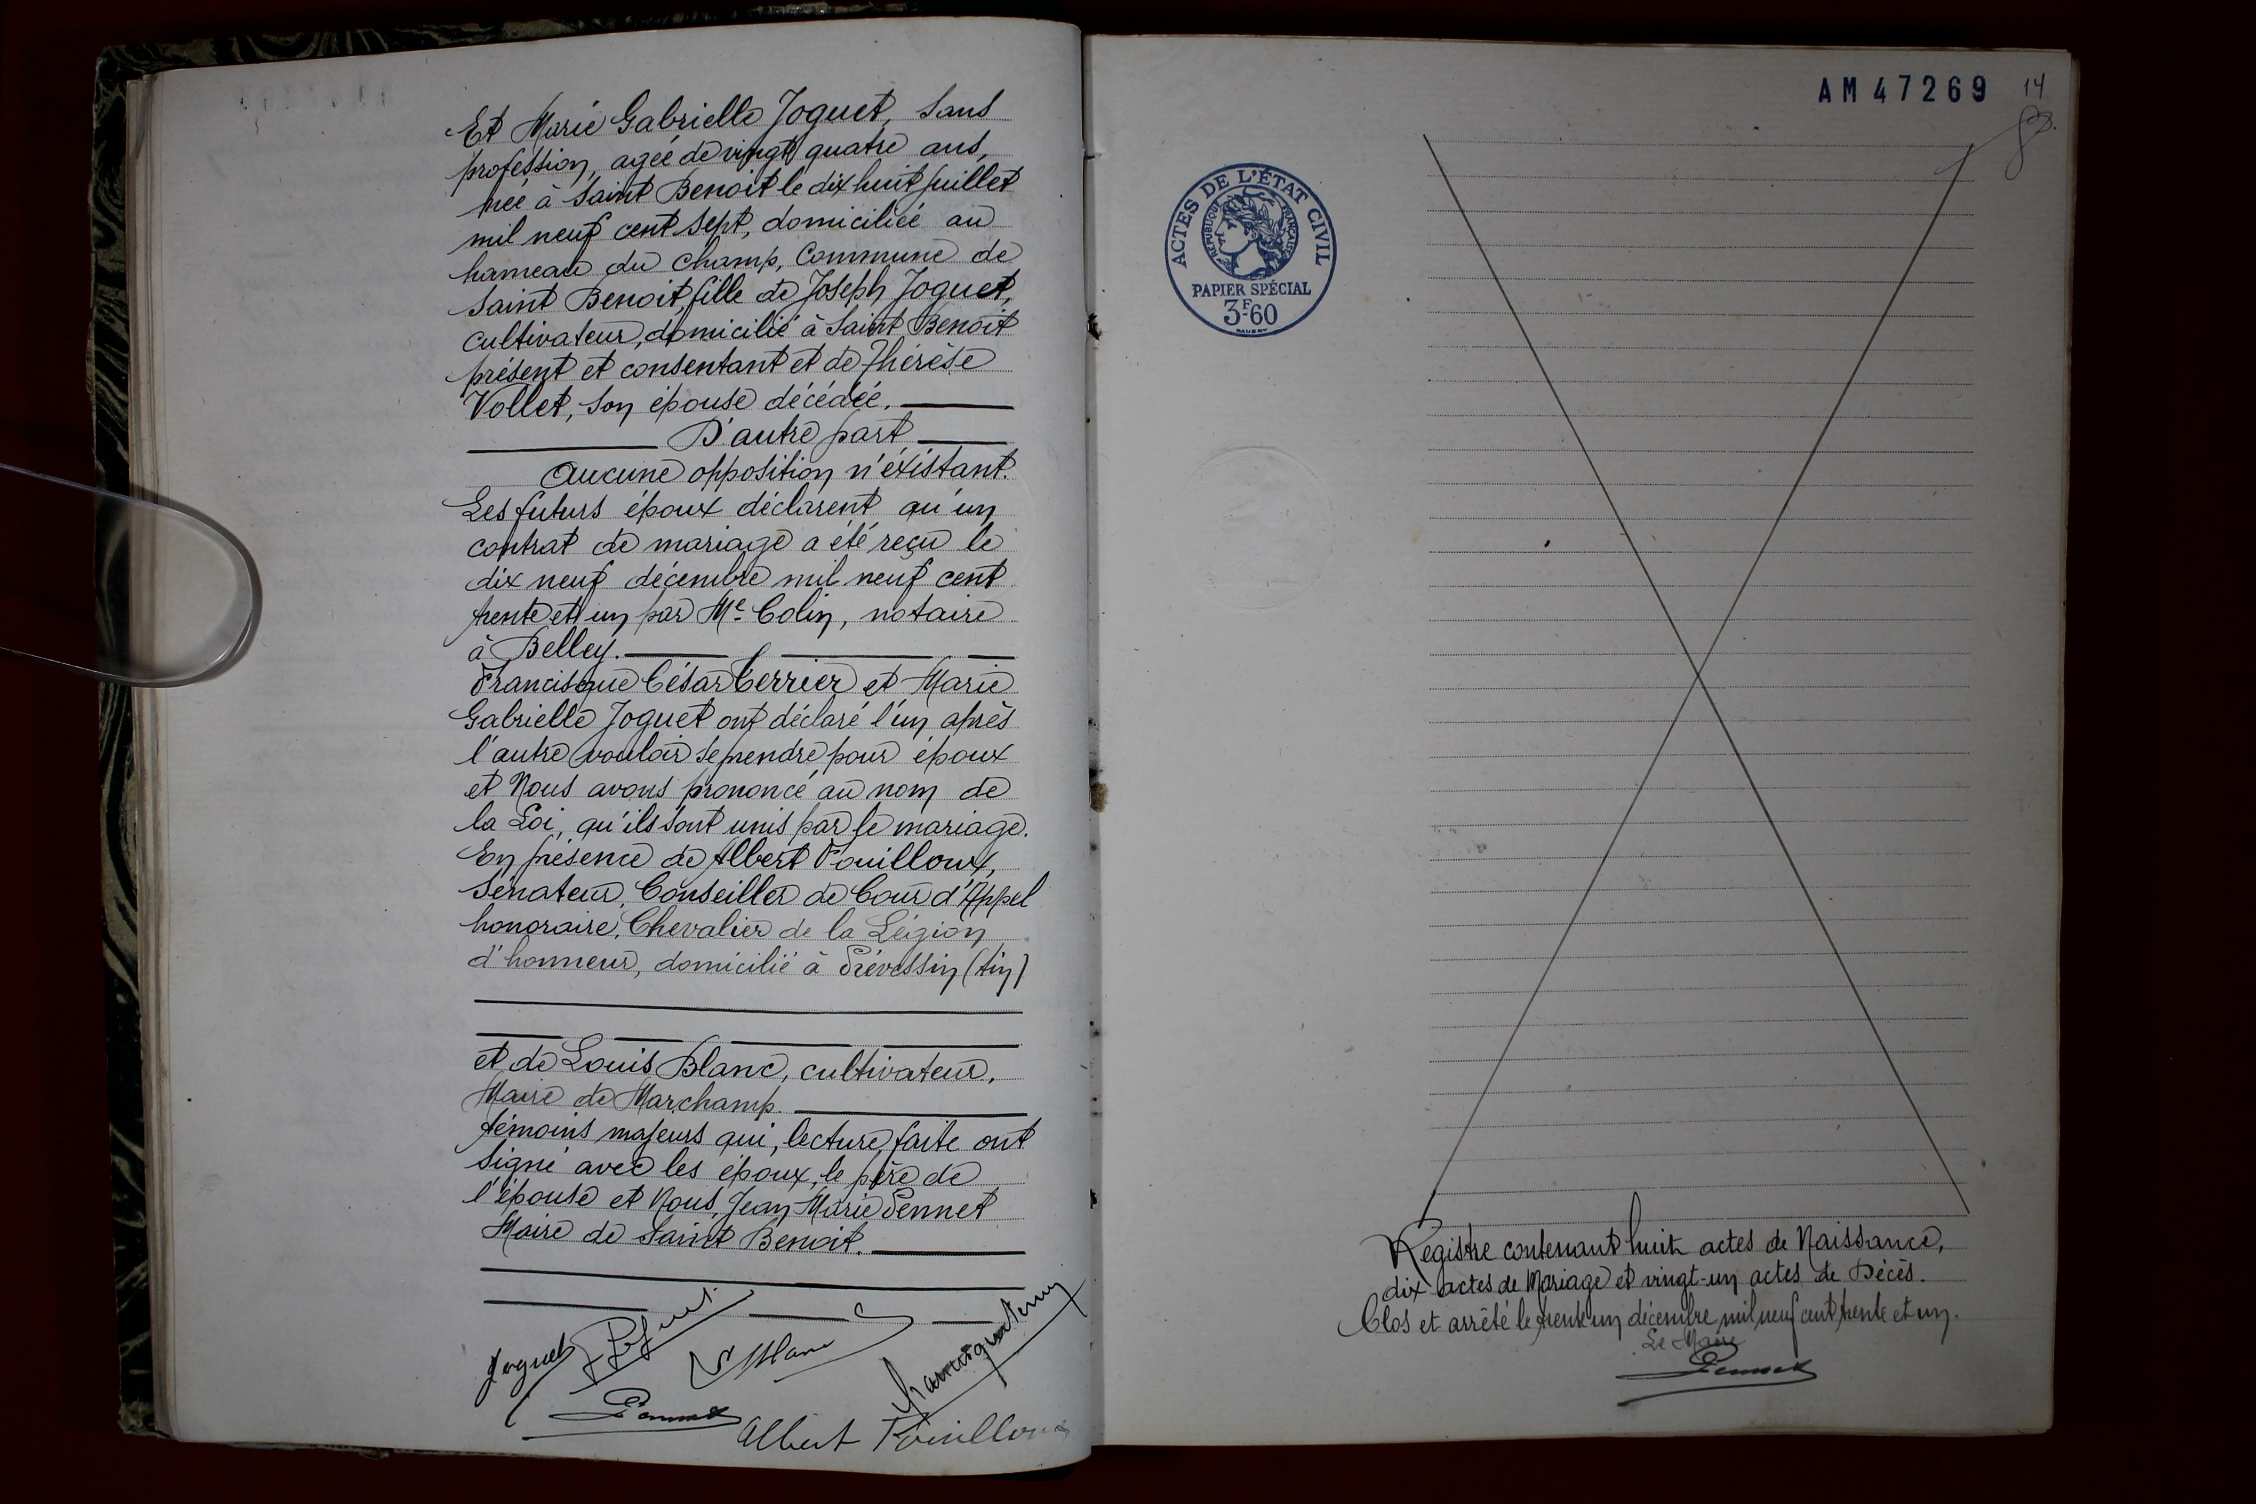 Et Marie Gabrielle Joguet, sans
profession, agée de vingt quatre ans,
née à Saint Benoit le dix huit juillet
mil neuf cent sept, domiciliée au
hameau du Champ, Commune de
Saint Benoit, fille de Joseph Joguet,
cultivateur, domicilié à Saint Benoit
présent et consentant et de Thérèse
Vollet, son épouse décédée.
D'autre part
Aucune opposition n'éxistant.
Les futurs époux déclarent qu'un
contrat de mariage a été reçu le
dix neuf décembre mil neuf cent
trente et un par Me Colin, notaire
à Belley.
Francisque César Cerrier et Marie
Gabrielle Joguet ont déclaré l'un après
l'autre vouloir se prendre pour époux
et Nous avons prononcé au nom de
la Loi, qu'ils sont unis par le mariage.
En présence de Albert Fouilloux,
Sénateur, Conseiller de Cour d'Appel
honoraire, Chevalier de la Légion
d'honneur, domicilié à Prévessin (Ain)
et de Louis Blanc, cultivateur,
Maire de Marchamp.
témoins majeurs qui, lecture faite ont
signé avec les époux, le père de
l'épouse et Nous, Jean Marie Pennet
Maire de Saint Benoit.
Joguet
Blanc
Pennet
Albert Fouilloux
AM 47269 14
ACTES DE L'ÉTAT CIVIL
RÉPUBLIQUE FRANÇAISE
PAPIER SPÉCIAL
3F60
Registre contenant huit actes de Naissance,
dix actes de Mariage et vingt-un actes de Décès.
Clos et arrêté le trente-un décembre mil neuf cent trente et un.
Le Maire
Pennet